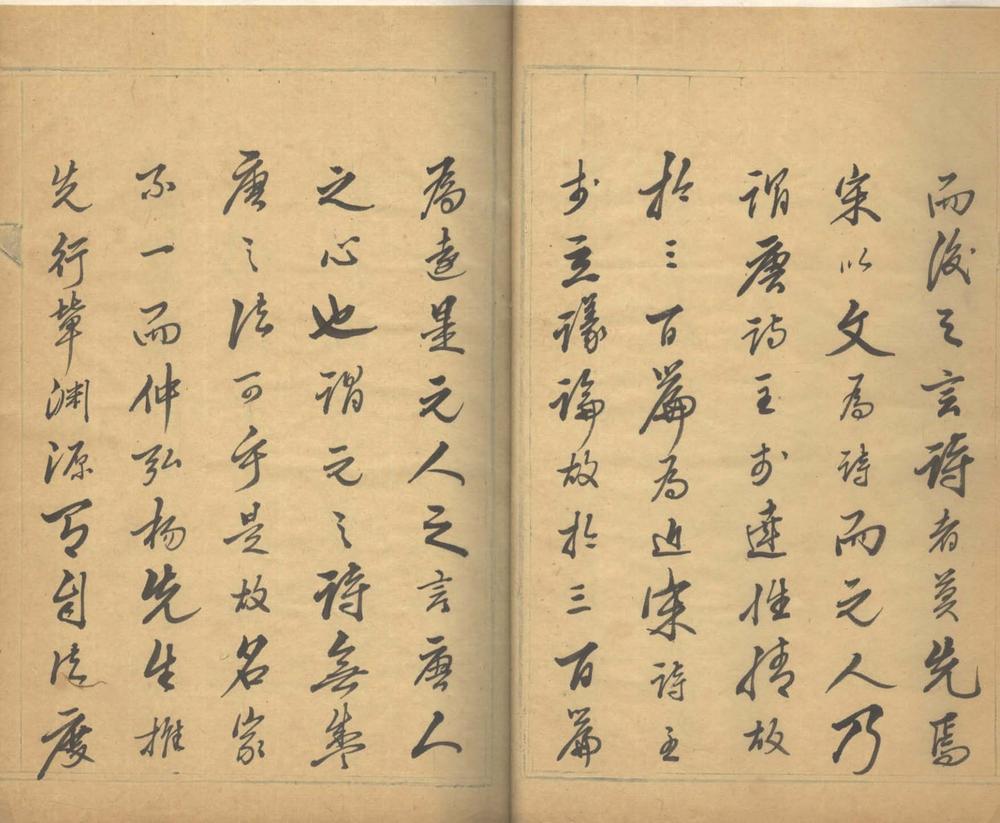 而後之言詩者莫先焉
宋以文為詩而元人乃
謂唐詩主於達性情故
於三百篇為近宋詩主
於立議論故於三百篇
為遠是元人之言唐人
之心也謂元之詩無盛
唐之法可乎是故名家
不一而仲弘楊先生推
先行輩淵源有自法度